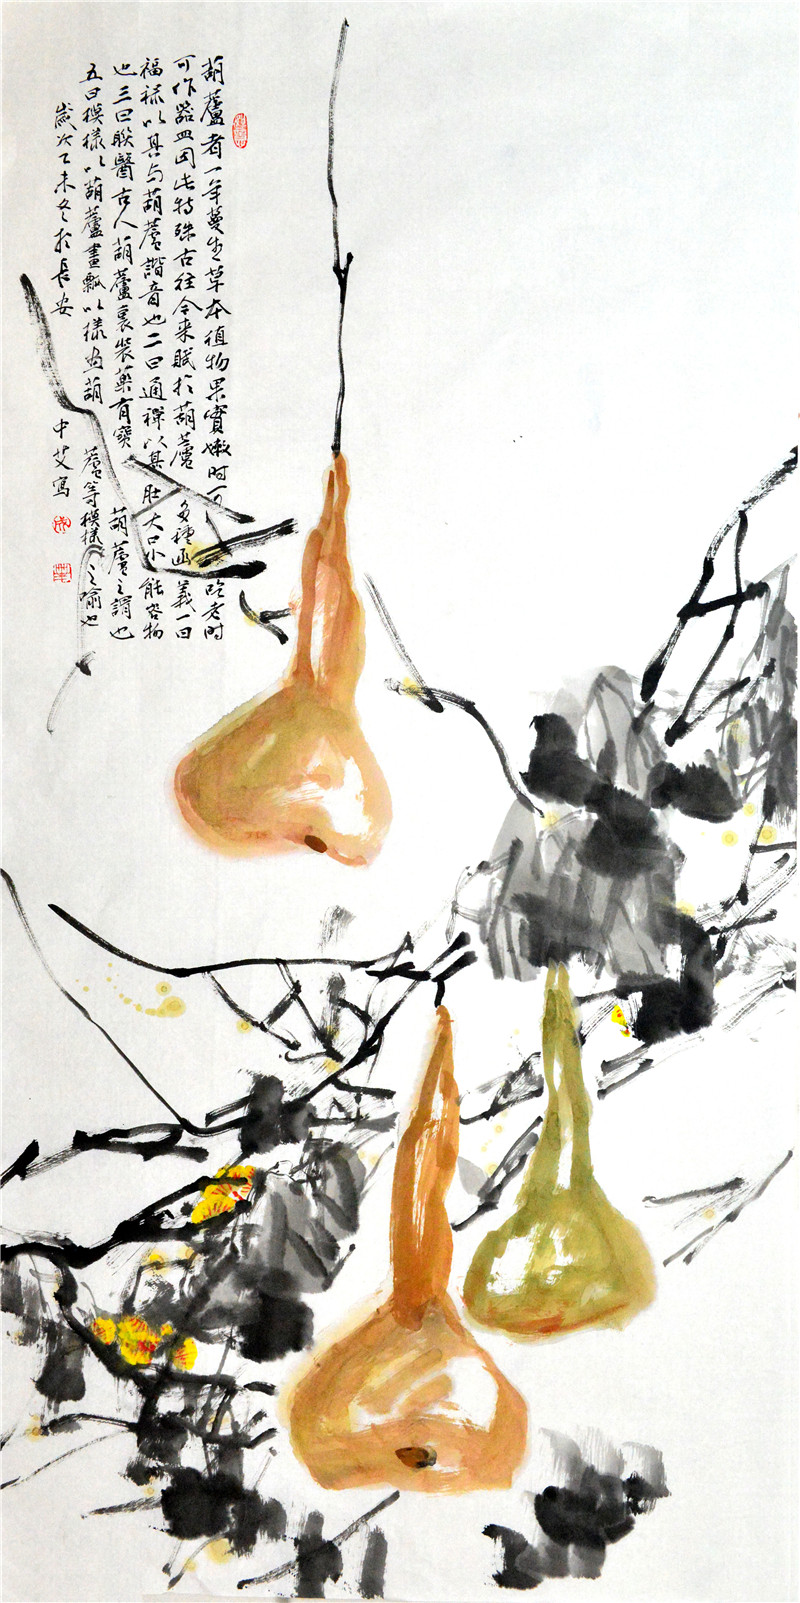 葫蘆者一年蔓生草本植物果實嫩時可吃老時
可作器皿因此特殊古往今来賦於葫蘆多種函義一曰
福祿以其与葫蘆諧音也二曰通禪以其肚大口小能容物
也三曰聯醫古人葫蘆裏裝藥有寶葫蘆之謂也
五曰模樣以葫蘆畫瓢以樣畫葫蘆等模樣之喻也
歲次乙未冬於長安 中艾寫